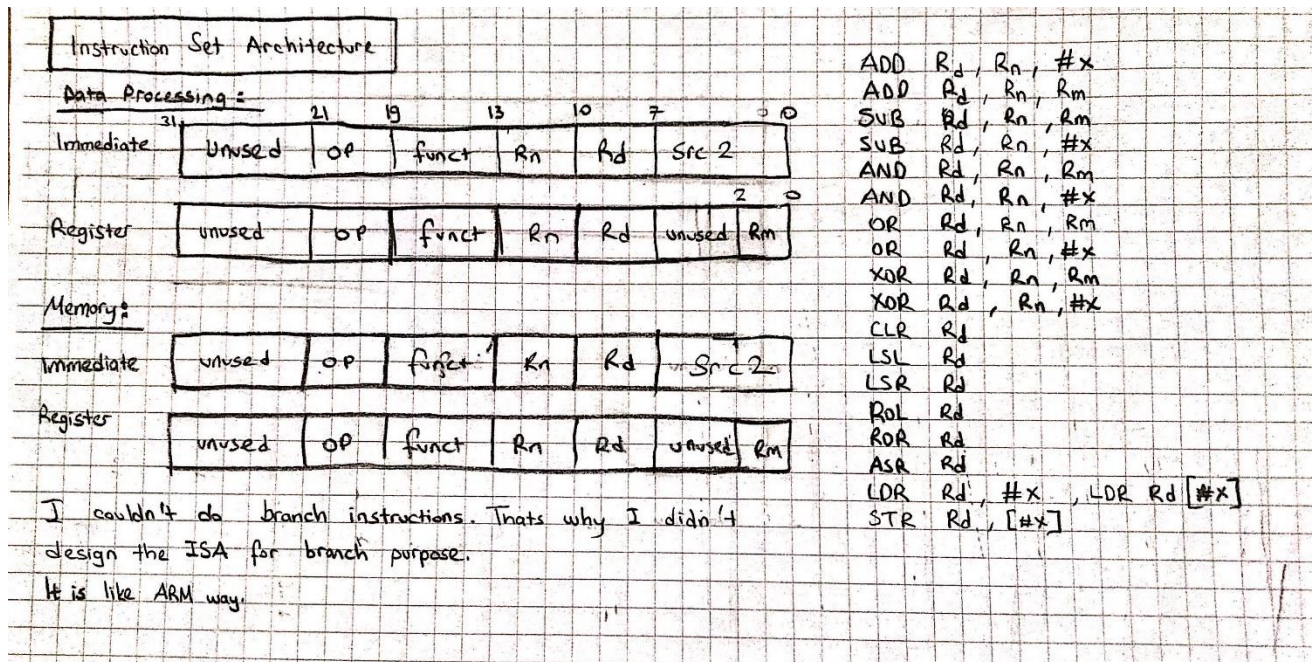 Instruction Set Architecture
Data Processing:
31 21 19 13 10 7 0
Immediate Unused OP funct Rn Rd Src 2
2 0
Register unused OP funct Rn Rd unused Rm
Memory:
Immediate unused OP funct Rn Rd Src 2
Register unused OP funct Rn Rd unused Rm
I couldn't do branch instructions. Thats why I didn't
design the ISA for branch purpose.
It is like ARM way.
ADD Rd, Rn, #x
ADD Rd, Rn, Rm
SUB Rd, Rn, Rm
SUB Rd, Rn, #x
AND Rd, Rn, Rm
AND Rd, Rn, #x
OR Rd, Rn, Rm
OR Rd, Rn, #x
XOR Rd, Rn, Rm
XOR Rd, Rn, #x
CLR Rd
LSL Rd
LSR Rd
ROL Rd
ROR Rd
ASR Rd
LDR Rd, #x , LDR Rd [#x]
STR Rd, [#x]